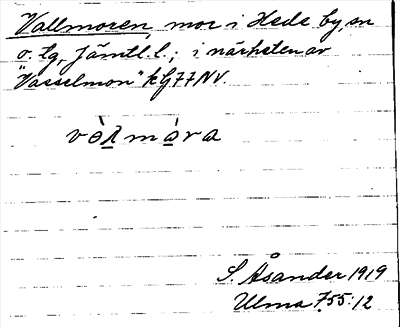 Vallmoren, mor i Hede by, sn
o. tg, Jämtl. l.; i närheten av
"Vasselmon" k Gg 77 NV.
vòlmàra
S. Åsander 1919
Ulma 755:12